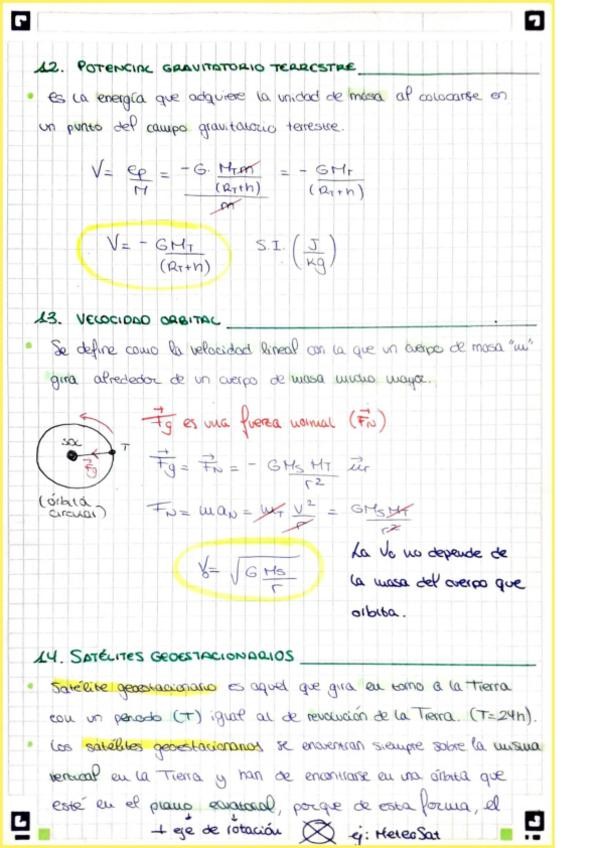 12. POTENCIAL GRAVITATORIO TERRESTRE
• es la energía que adquiere la unidad de masa al colocarse en
un punto del campo gravitatorio terrestre.
V = ep/M = (-G · MT m/(RT+h))/m = - GMT/(RT+h)
V = - GMT/(RT+h) S.I. (J/kg)
13. VELOCIDAD ORBITAL
• Se define como la velocidad lineal con la que un cuerpo de masa "m"
gira alrededor de un cuerpo de masa mucho mayor.
F⃗g es una fuerza normal (F⃗N)
SOL T
F⃗g
F⃗g = F⃗N = - GMS MT/r² u⃗r
(órbita
circular)
FN = maN = mT V²/r = GMS MT/r²
V0 = √(G MS/r)
La V0 no depende de
la masa del cuerpo que
orbita.
14. SATÉLITES GEOESTACIONARIOS
• Satélite geoestacionario es aquel que gira en torno a la Tierra
con un periodo (T) igual al de revolución de la Tierra. (T=24h).
• Los satélites geoestacionarios se encuentran siempre sobre la misma
vertical en la Tierra y han de encontrarse en una órbita que
esté en el plano ecuatorial, porque de esta forma, el
⊥ eje de rotación ej: MeteoSat